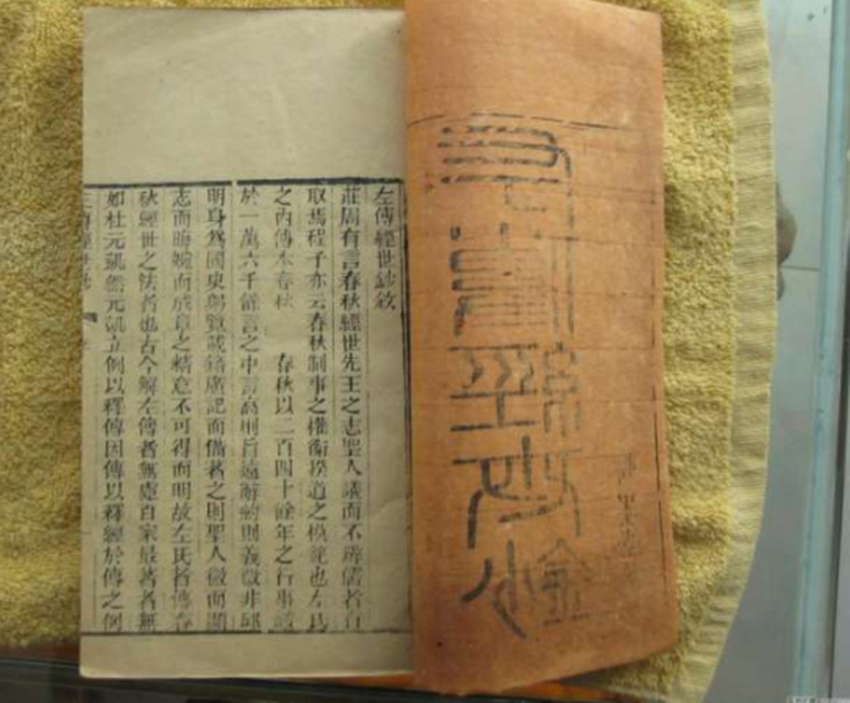 左傳經世鈔
左傳經世鈔敘
莊周有言春秋經世先王之志聖人議而不辨儒者有
取焉程子亦云春秋制事之權衡揆道之模範也左氏
之內傳本春秋 春秋以二百四十餘年之行事
於一萬六千餘言之中言高則旨遠辭約則義微非邱
明身為國史躬覽載籍廣記而備者之則聖人微而
志而晦婉而成章之精意不可得而明故左氏者傳春
秋經世之法者也古今解左傳者無慮百家最著者無
如杜元凱然元凱立例以釋傳因傳以釋經於傳之例